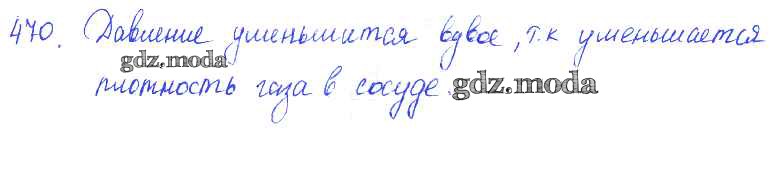 470. Давление уменьшится вдвое, т.к уменьшается
gdz.moda
плотность газа в сосуде. gdz.moda